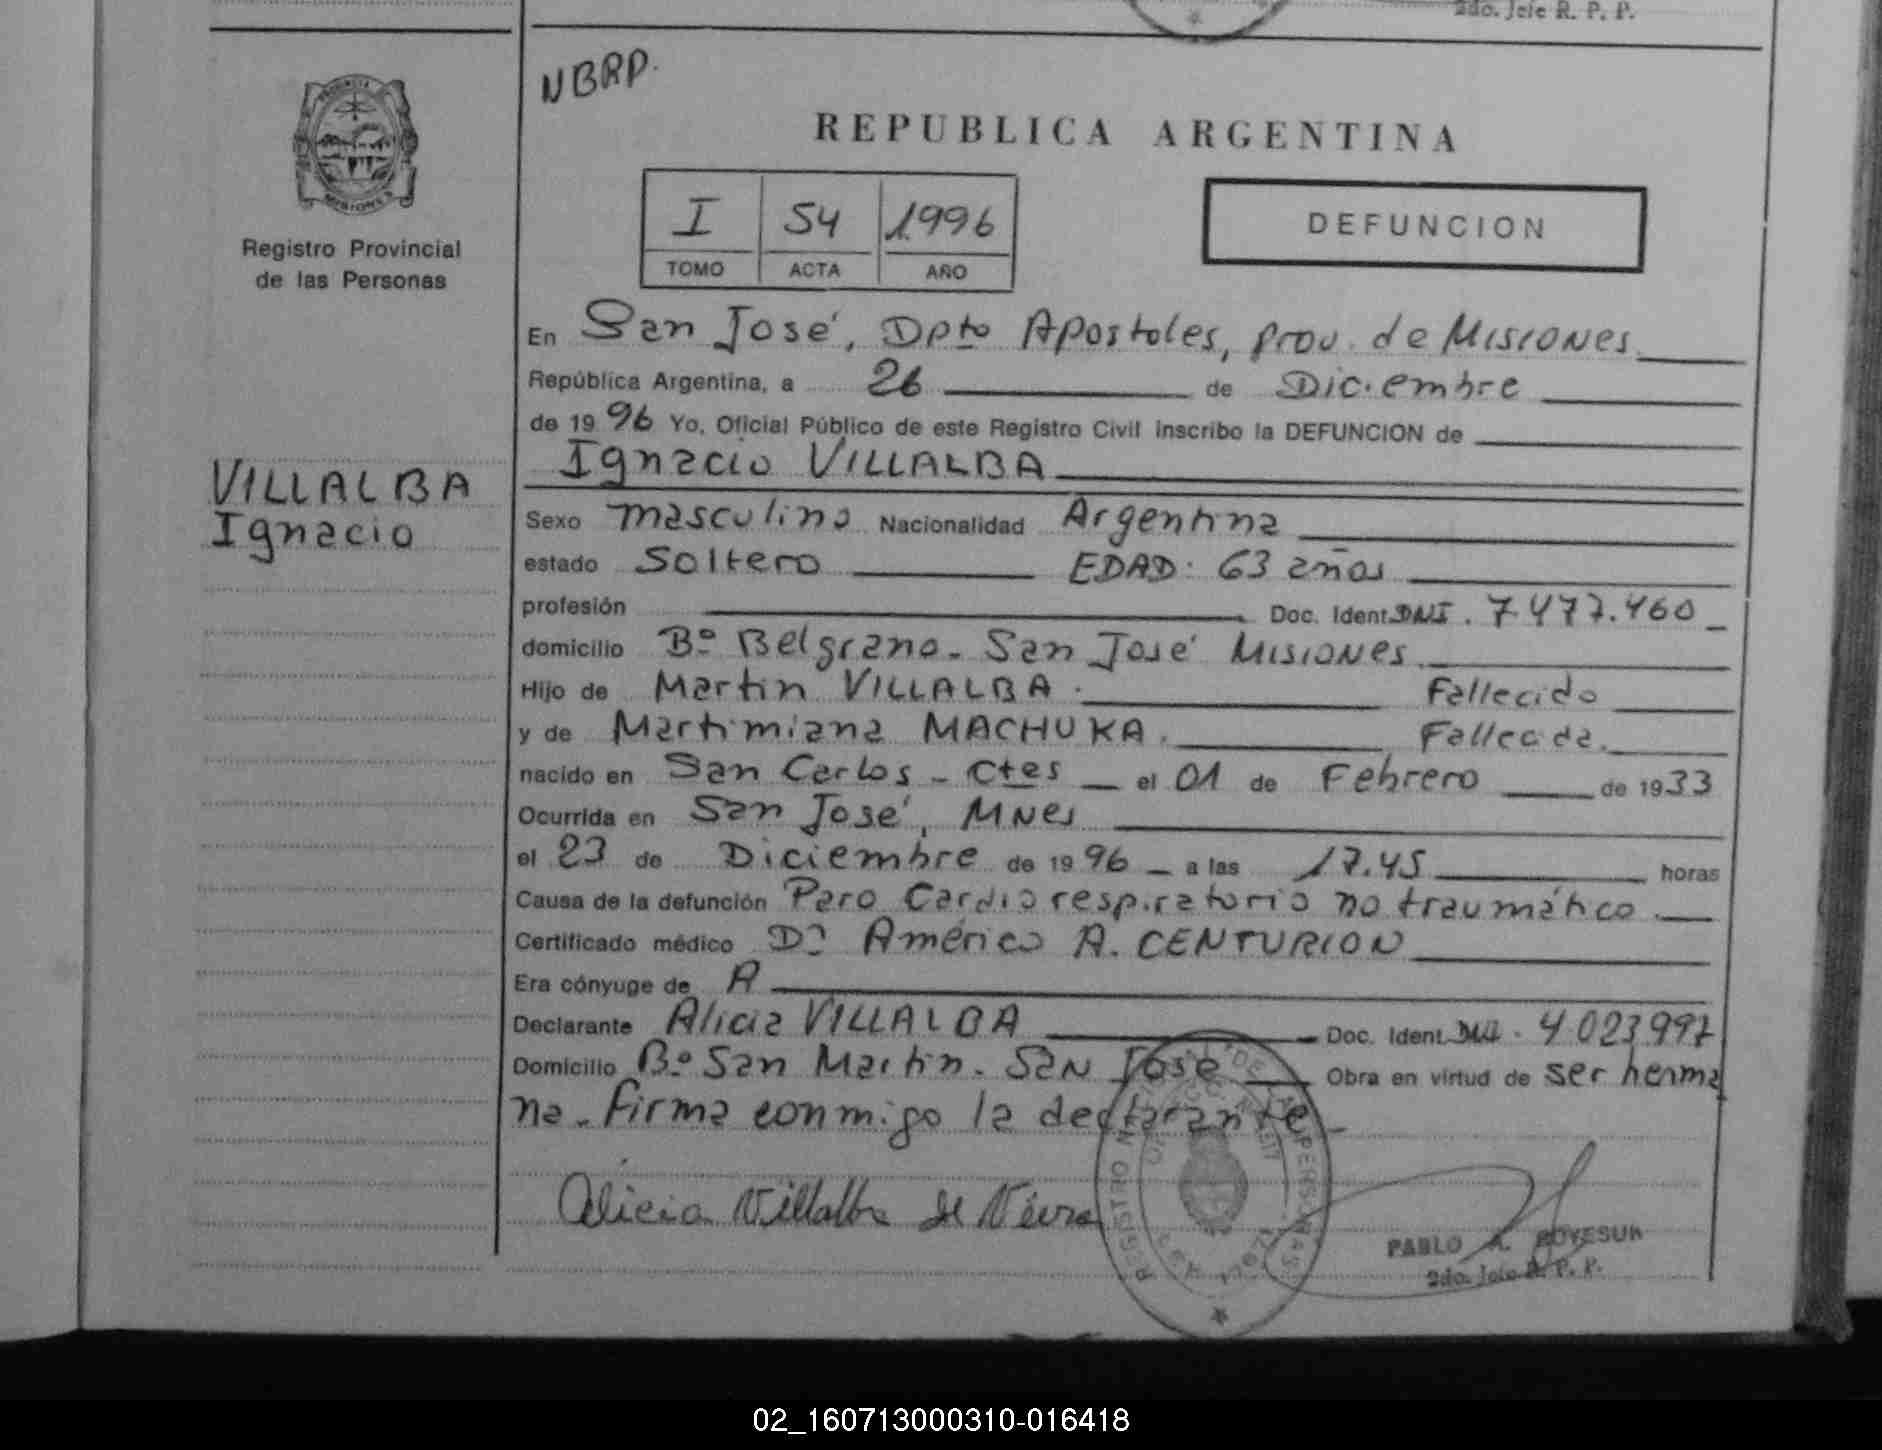 2do. Jefe R. P. P.
NBRP.
REPUBLICA ARGENTINA
PROVINCIA
MISIONES
Registro Provincial
de las Personas
I 54 1996
TOMO ACTA AÑO
DEFUNCION
En San José, Dpto Apostoles, prov. de MISIONES
República Argentina, a 26 de Diciembre
de 19 96 Yo, Oficial Público de este Registro Civil inscribo la DEFUNCION de
Ignacio VILLALBA
VILLALBA
Ignacio
Sexo masculino Nacionalidad Argentina
estado Soltero EDAD: 63 años
profesión Doc. Ident. DNI. 7.477.460
domicilio Bº Belgrano - San José MISIONES
Hijo de Martin VILLALBA. Fallecido
y de Martimiana MACHUKA. Fallecida.
nacido en San Carlos - Ctes el 01 de Febrero de 1933
Ocurrida en San José, MNes
el 23 de Diciembre de 19 96 a las 17.45 horas
Causa de la defunción Paro Cardio respiratorio no traumático
Certificado médico Dr Américo A. CENTURION
Era cónyuge de A
Declarante Alicia VILLALBA Doc. Ident. 4023997
Domicilio Bº San Martin - San José Obra en virtud de ser herma
na - Firma conmigo la declarante
Alicia Villalba de
PABLO A.
2do. Jefe R. P. P.
02_160713000310-016418